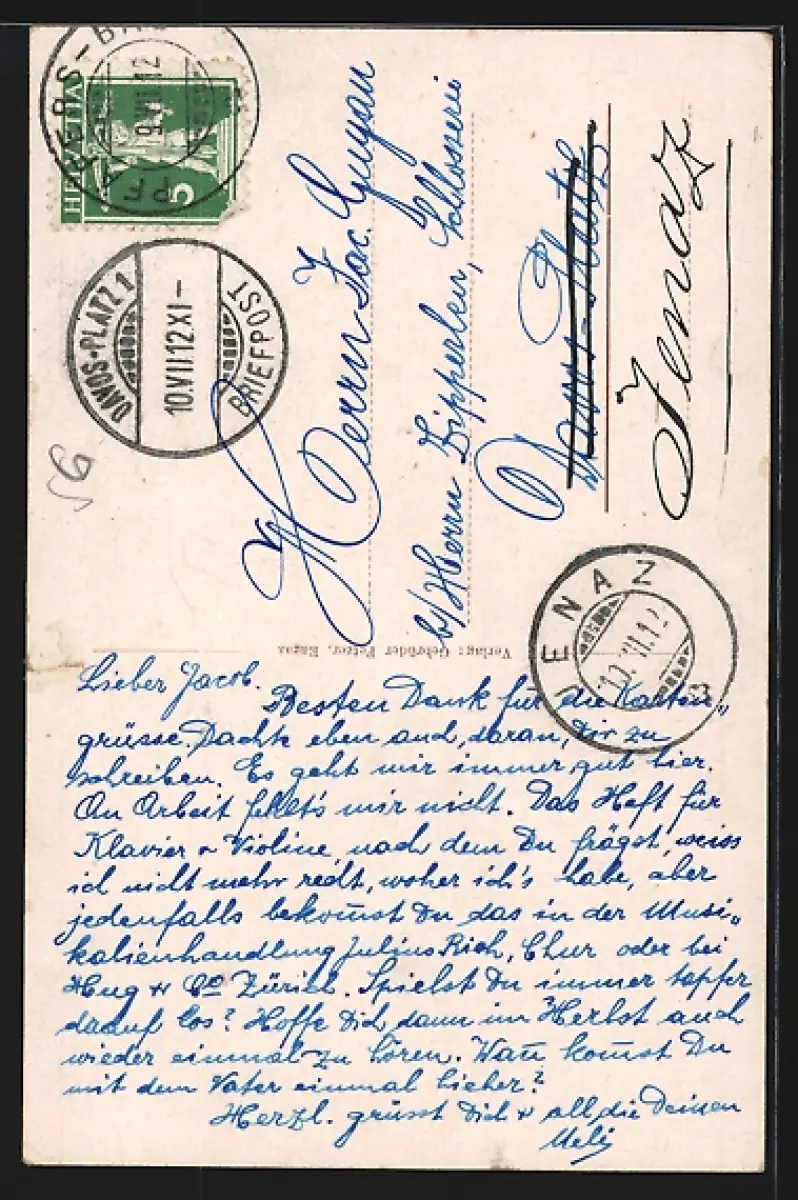 HELVETIA
5
PFÄFERS-BAD
9.VII.12
DAVOS-PLATZ 1
10.VII.12 XI-
BRIEFPOST
56
Herrn Jac.
b/Herrn Zipperlen, Schlosserei
Davos-Platz
Jenaz
JENAZ
10.VII.12
Verlag: Gebrüder Petzer, Ragaz
Lieber Jacob.
Besten Dank für die Karten„
grüsse. Dachte eben auch, daran, Dir zu
schreiben. Es geht mir immer gut hier.
An Arbeit fehlt's mir nicht. Das Heft für
Klavier & Violine, nach dem Du frägst, weiss
ich nicht mehr recht, woher ich's habe, aber
jedenfalls bekom̄st Du das in der Musi„
kalienhandlung Julius Rich, Chur oder bei
Hug & Co Zürich. Spielst Du immer tapfer
darauf los? Hoffe Dich dann im Herbst auch
wieder einmal zu hören. Wan̄ kom̄st Du
mit dem Vater einmal hieher?
Herzl. grüsst Dich & all die Deinen